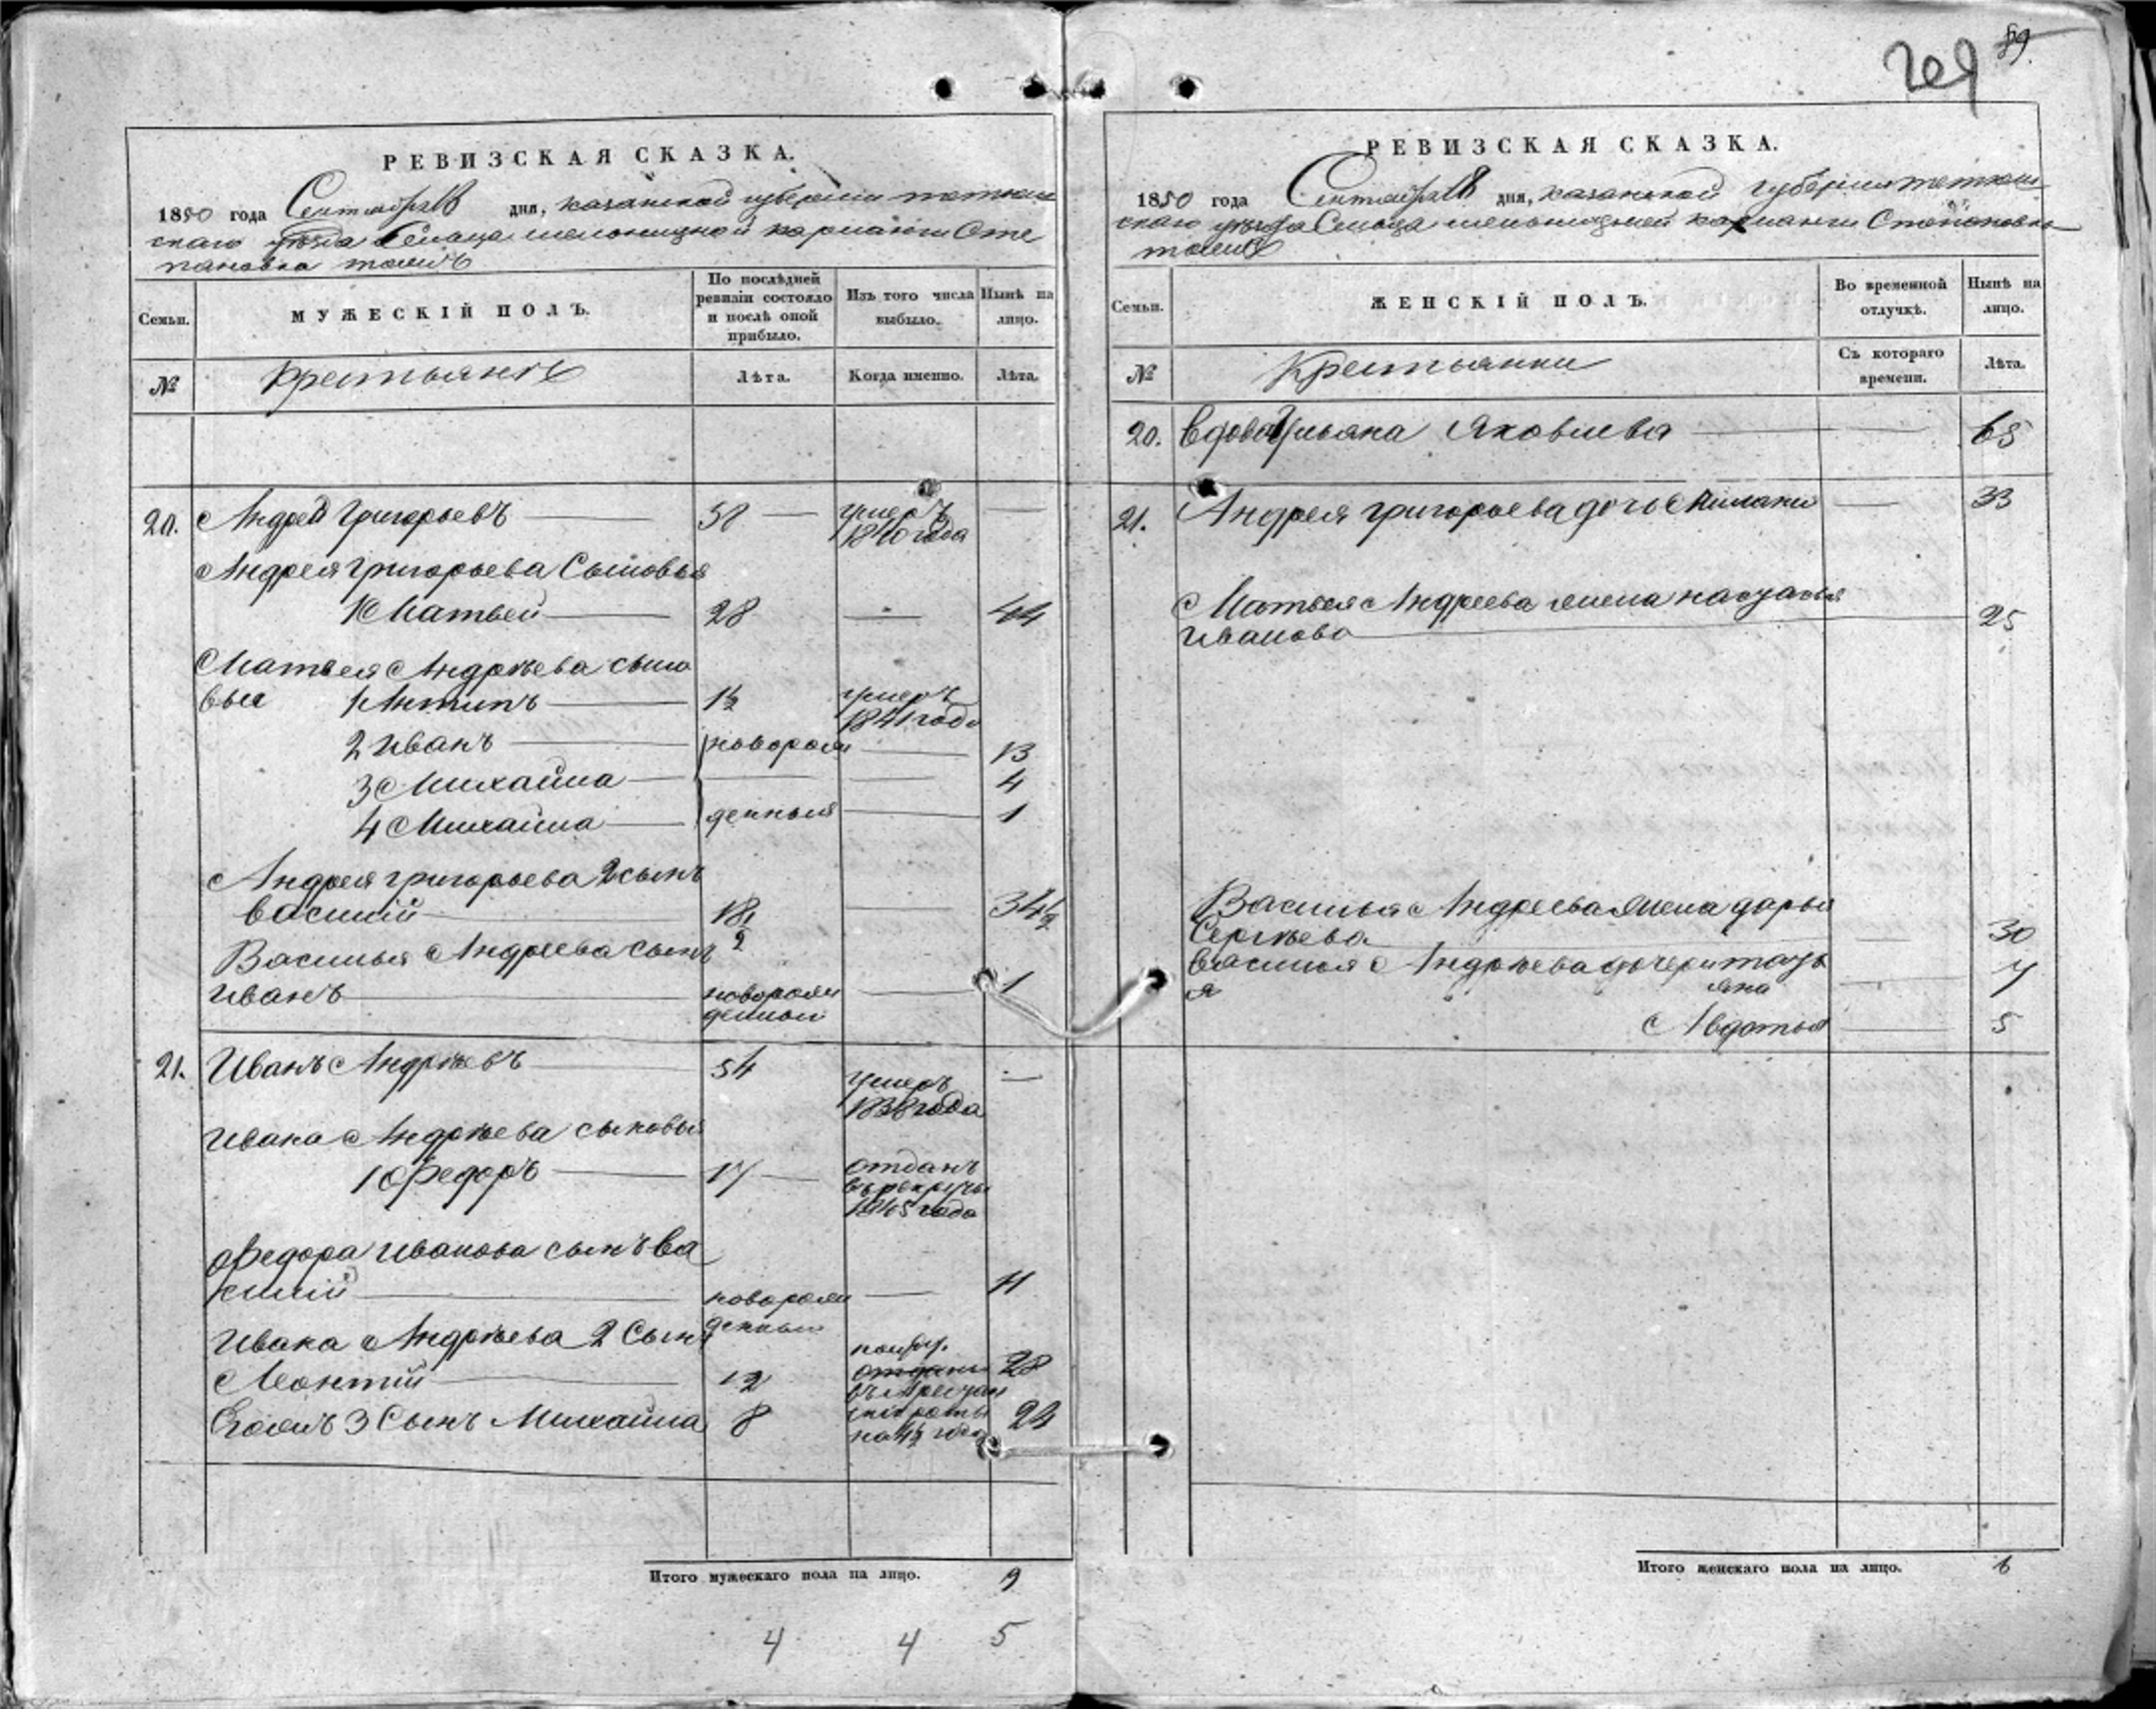 89.
РЕВИЗСКАЯ СКАЗКА.
1850 года Сентября 8 дня, казанской губернии тетюш
скаго уѣзда Сельца мельничной кармалки Сте
пановка тожъ
Семьи.
МУЖЕСКІЙ ПОЛЪ.
По послѣдней ревизіи состояло и послѣ оной прибыло.
Изъ того числа выбыло.
Нынѣ на лицо.
№
Крестьянѣ
Лѣта.
Когда именно.
Лѣта.
20. Андрей Григорьевъ 58 умеръ
1840 года
Андрея григорьева Сыновья
1 Матвей 28 44
Матвея Андрѣева сыно
вья 1 Антипъ 1½ умеръ
1841 года
2 Иванъ новорож 13
3 Михайла 4
4 Михайла денныя 1
Андрея григорьева 2 сынъ
василій 18½ 34½
Васильья Андреева сынъ
иванъ новорож 1
денной
21. Иванъ Андрѣевъ 54 умеръ
1838 года
Ивана Андрѣева сыновья
1 Федоръ 17 отданъ
въ рекруты
1845 года
Федора Иванова сынъ ва
силій новорож 11
денный
Ивана Андрѣева 2 Сынъ
Леонтій 12 28
3 Сынъ Михайла 8 роты 24
на 4½ года
Итого мужескаго пола на лицо. 9
4 4 5
РЕВИЗСКАЯ СКАЗКА.
1850 года Сентября 8 дня, казанской губернии тетюш
скаго уѣзда Сельца мельничной кармалки Степановка
тожъ
Семьи.
ЖЕНСКІЙ ПОЛЪ.
Во временной отлучкѣ.
Нынѣ на лицо.
№
Крестьянки
Съ котораго времени.
Лѣта.
20. вдова Ульяна Яковлева 65
21. Андрея григорьева дочь 33
Матвея Андреева жена настасья
Иванова 25
Васильья Андреева жена дарья
Сергѣева 30
васильья Андрѣева дочери татья
яна 7
Авдотья 5
Итого женскаго пола на лицо. 6